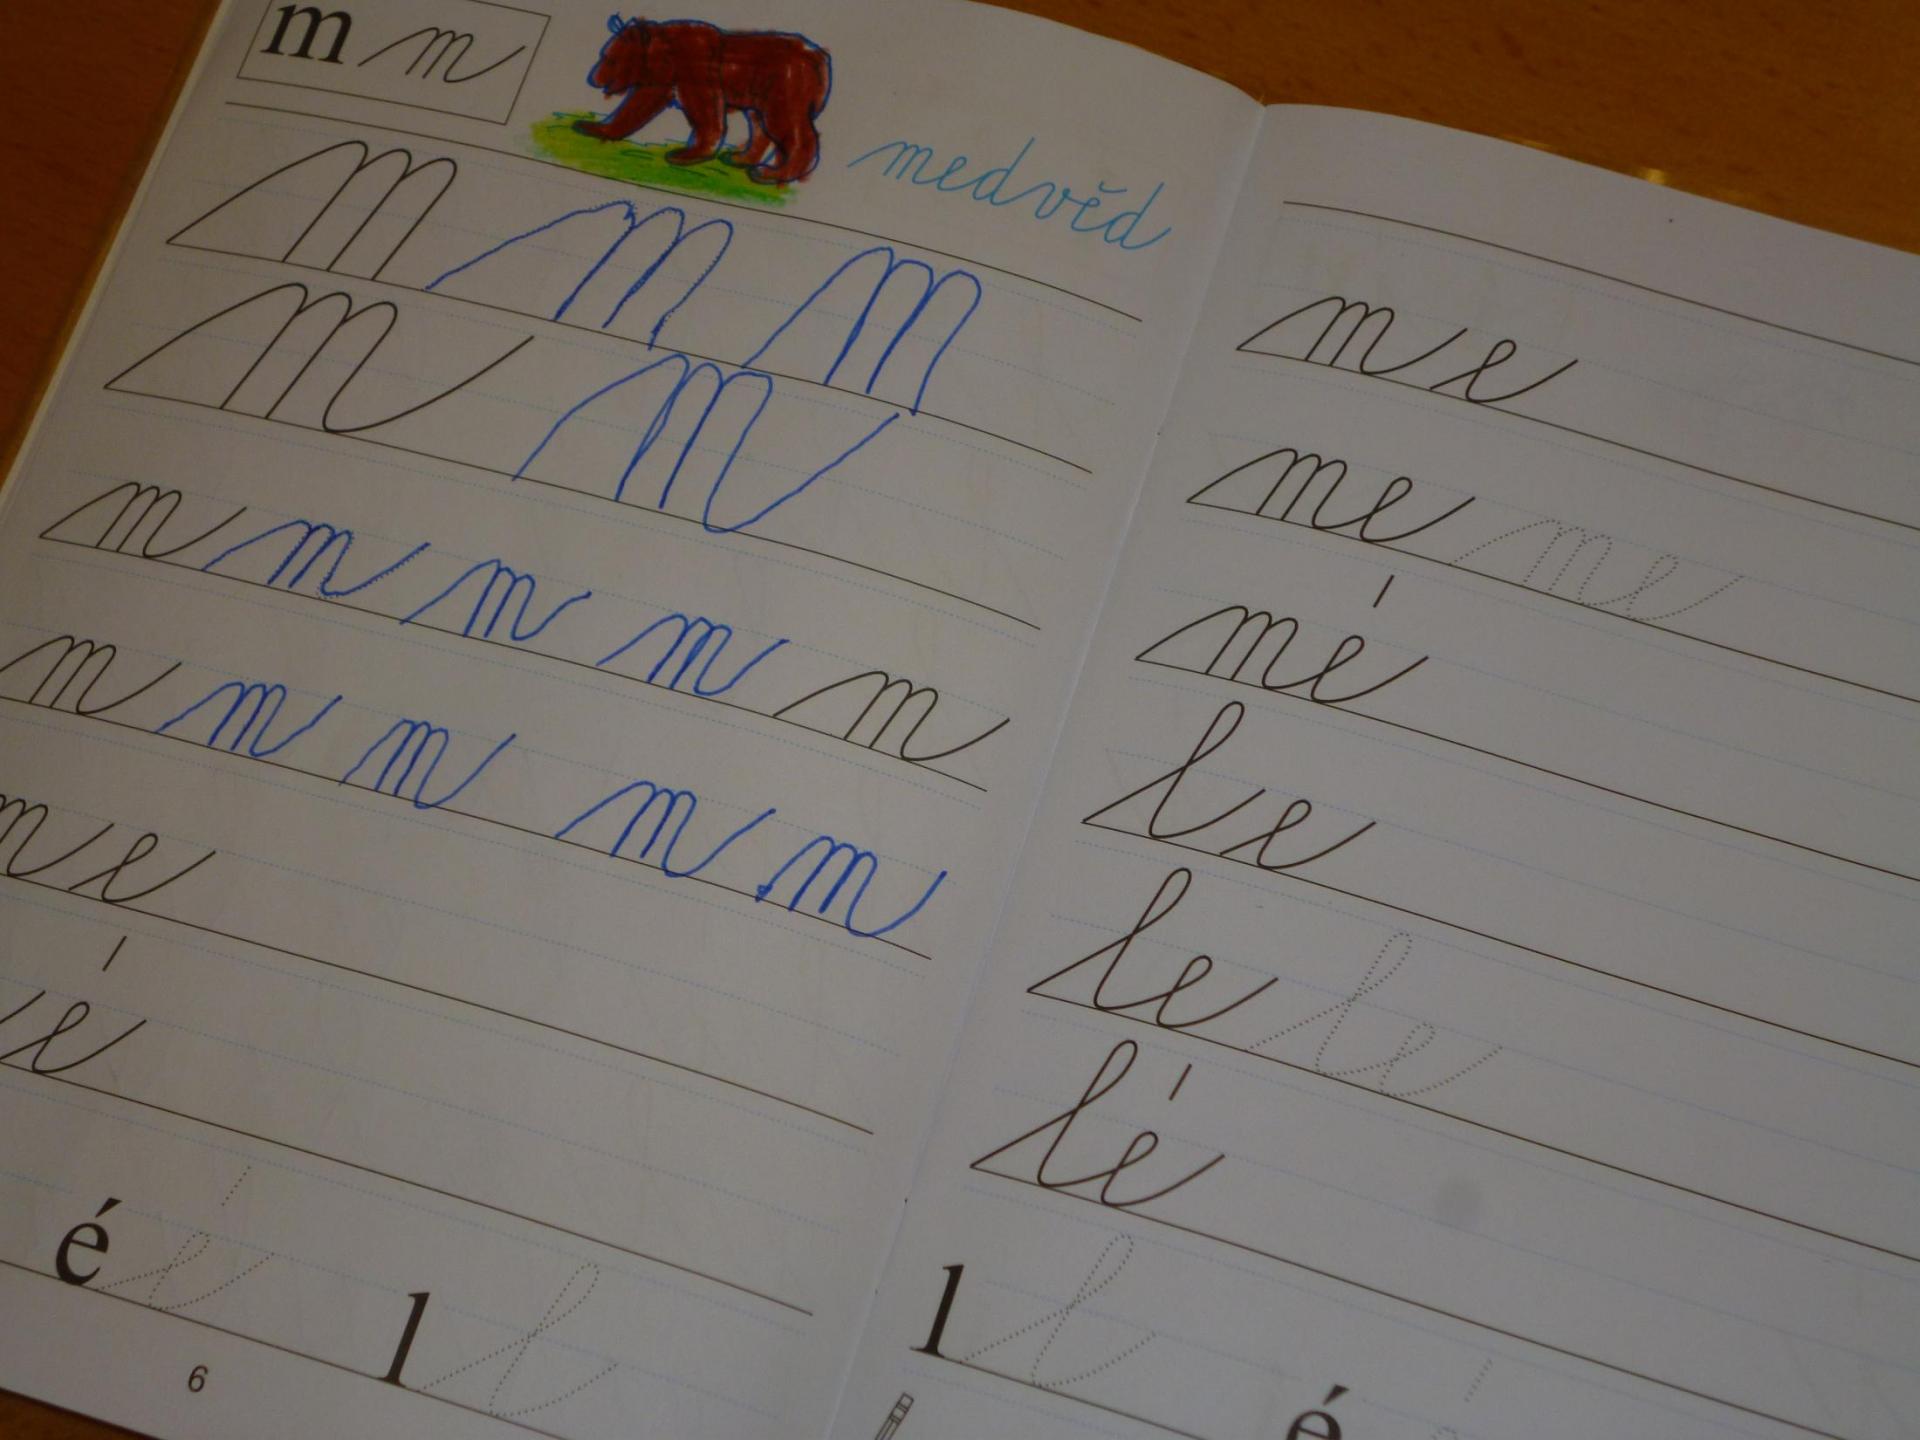 m m medvěd
m m m
m m
m m m m m
m m m m m
me
é
é é l l
6
me
me me
mé
le
le le
lé
l l
é